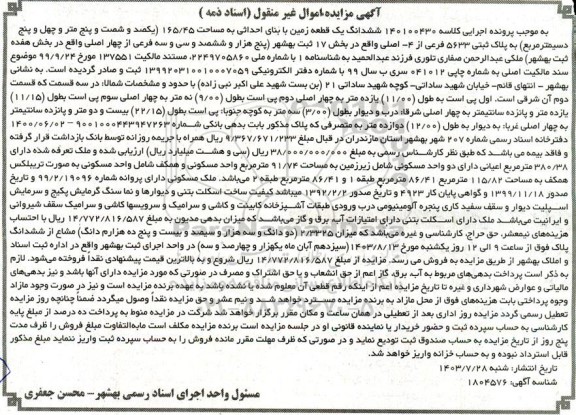 آگهی مزایده اموال غیر منقول (اسناد ذمه )
به موجب پرونده اجرایی کلاسه ۱۴۰۱۰۰۴۳۰ ششدانگ یک قطعه زمین با بنای احداثی به مساحت ۱۶۵/۴۵ (یکصد و شصت و پنج متر و چهل و پنج
دسیمترمربع) به پلاک ثبتی ۵۶۳۳ فرعی از ۴- اصلی واقع در بخش ۱۷ ثبت بهشهر (پنج هزار و ششصد و سی و سه فرعی از چهار اصلی واقع در بخش هفده
ثبت بهشهر) ملکی عبدالرحمن صفاری تلوری فرزند عبدالحمید به شناسنامه ۱ با شماره ملی ۲۲۴۹۷۰۵۸۶۰، مستند مالکیت ۱۳۷۵۵۱ مورخ ۹۹/۹/۲۴ موضوع
سند مالکیت اصلی به شماره چاپی ۰۴۱۰۱۲ سری ب سال ۹۹ با شماره دفتر الکترونیکی ۱۳۹۹۲۰۳۱۰۰۱۰۰۰۷۰۵۹ ثبت و صادر گردیده است. به نشانی
بهشهر - انتهای قائم- خیابان شهید ساداتی-کوچه شهید ساداتی ۲۱ (بن بست شهید علی اکبر نبی زاده) با حدود و مشخصات شمالا: در سه قسمت که قسمت
دوم آن شرقی است. اول پی است به طول (۱۱/۰۰) یازده متر به چهار اصلی دوم پی است بطول (۹/۰۰) نه متر به چهار اصلی سوم پی است بطول (۱۱/۱۵)
یازده متر و پانزده سانتیمتر به چهار اصلی شرقا: درب و دیوار بطول (۳/۰۰) سه متر به کوچه جنوبا: پی است بطول (۲۲/۱۵) بیست و دو متر و پانزده سانتیمتر
به چهار اصلی غربا: به دیوار به طول (۱۲/۰۰) دوازده متر به متصرفی که پلاک مذکور بابت بدهی بانکی شماره ۹۰۰۱۰۰۰۴۴۳۹۴۷۲۶۳ - ۱۴۰۰/۰۶/۰۲
دفترخانه اسناد رسمی شماره ۲۰۷ شهر بهشهر استان مازندران در قبال مبلغ ۹/۳۶۷/۶۷۱/۲۳۳ ریال همراه با جریمه روزانه توسط بانک بازداشت قرار گرفته
و فاقد بیمه می باشد که طبق نظر کارشناس رسمی به مبلغ ۳۸/۰۰۰/۰۰۰/۰۰۰ ریال (سی و هشت میلیارد ریال) ارزیابی شده و ملک تعرفه شده دارای
۳۸۰/۳۸ مترمربع اعیانی دارای دو واحد مسکونی شامل زیرزمین به مساحت ۹۱/۷۴ مترمربع واحد مسکونی و همکف شامل واحد مسکونی به صورت تریبلکس
همکف به مساحت ۱۵/۸۲ مترمربع ۸۶/۴۱ مترمربع طبقه ۱ و ۸۶/۴۱ مترمربع طبقه ۲ میباشد. ملک مسکونی دارای پروانه شماره ۹۹/۲/۱۹۰۹۶ و تاریخ
صدور ۱۳۹۹/۱۱/۱۸ و گواهی پایان کار ۴۹۲۳ و تاریخ صدور ۱۳۹۲/۲/۲ میباشد کیفیت ساخت اسکلت بتنی و دیوارها و نما سنگ گرمایش پکیج و سرمایش
اسپلیت دیوار و سقف سفید کاری پنجره آلومینیومی درب ورودی طبقات آشپزخانه کابینت و کاشی و سرامیک و سرویسها کاشی و سرامیک سقف شیروانی
و ایرانیت می‌باشد ملک دارای اسکلت بتنی دارای امتیازات آب، برق و گاز می‌باشد. که میزان بدهی مدیون به مبلغ ۱۴/۷۷۲/۸۱۶/۵۸۷ ریال با احتساب
هزینه‌های نیمعشر، حق حراج، کارشناسی و غیره می‌باشد
پلاک فوق از ساعت ۹ الی ۱۲ روز یکشنبه مورخ ۱۴۰۳/۸/۱۳ (سیزدهم آبان ماه یکهزار و چهارصد و سه) در واحد اجرای ثبت بهشهر واقع در اداره ثبت اسناد
و املاک بهشهر از طریق مزایده به فروش می رسد. مزایده از مبلغ ۱۴/۷۷۲/۸۱۶/۵۸۷ ریال شروع و به بالاترین قیمت پیشنهادی نقداً فروخته می‌شود. لازم
به ذکر است پرداخت بدهی‌های مربوط به آب، برق، گاز اعم از حق انشعاب و یا حق اشتراک و مصرف در صورتی که مورد مزایده دارای آنها باشد و نیز بدهی‌های
مالیاتی و عوارض شهرداری و غیره تا تاریخ مزایده اعم از اینکه رقم قطعی آن معلوم شده یا نشده باشد به عهده برنده مزایده است و نیز در صورت وجود مازاد
وجوه پرداختی بابت هزینه‌های فوق از محل مازاد به برنده مزایده مسترد خواهد شد و نیم عشر و حق مزایده نقداً وصول میگردد ضمناً چنانچه روز مزایده
تعطیل رسمی گردد مزایده روز اداری بعد از تعطیلی در همان ساعت و مکان مقرر برگزار خواهد شد شرکت در مزایده منوط به پرداخت ده درصد از مبلغ پایه
کارشناسی به حساب سپرده ثبت و حضور خریدار یا نماینده قانونی او در جلسه مزایده است برنده مزایده مکلف است مابه‌التفاوت مبلغ فروش را ظرف مدت
پنج روز از تاریخ مزایده به حساب صندوق ثبت تودیع نماید و در صورتی که ظرف مهلت مقرر مانده فروش را به حساب سپرده ثبت واریز ننماید مبلغ مذکور
قابل استرداد نبوده و به حساب خزانه واریز خواهد شد.
تاریخ انتشار: شنبه ۱۴۰۳/۷/۲۸
شناسه آگهی: ۱۸۰۴۵۷۶
مسئول واحد اجرای اسناد رسمی بهشهر - محسن جعفری